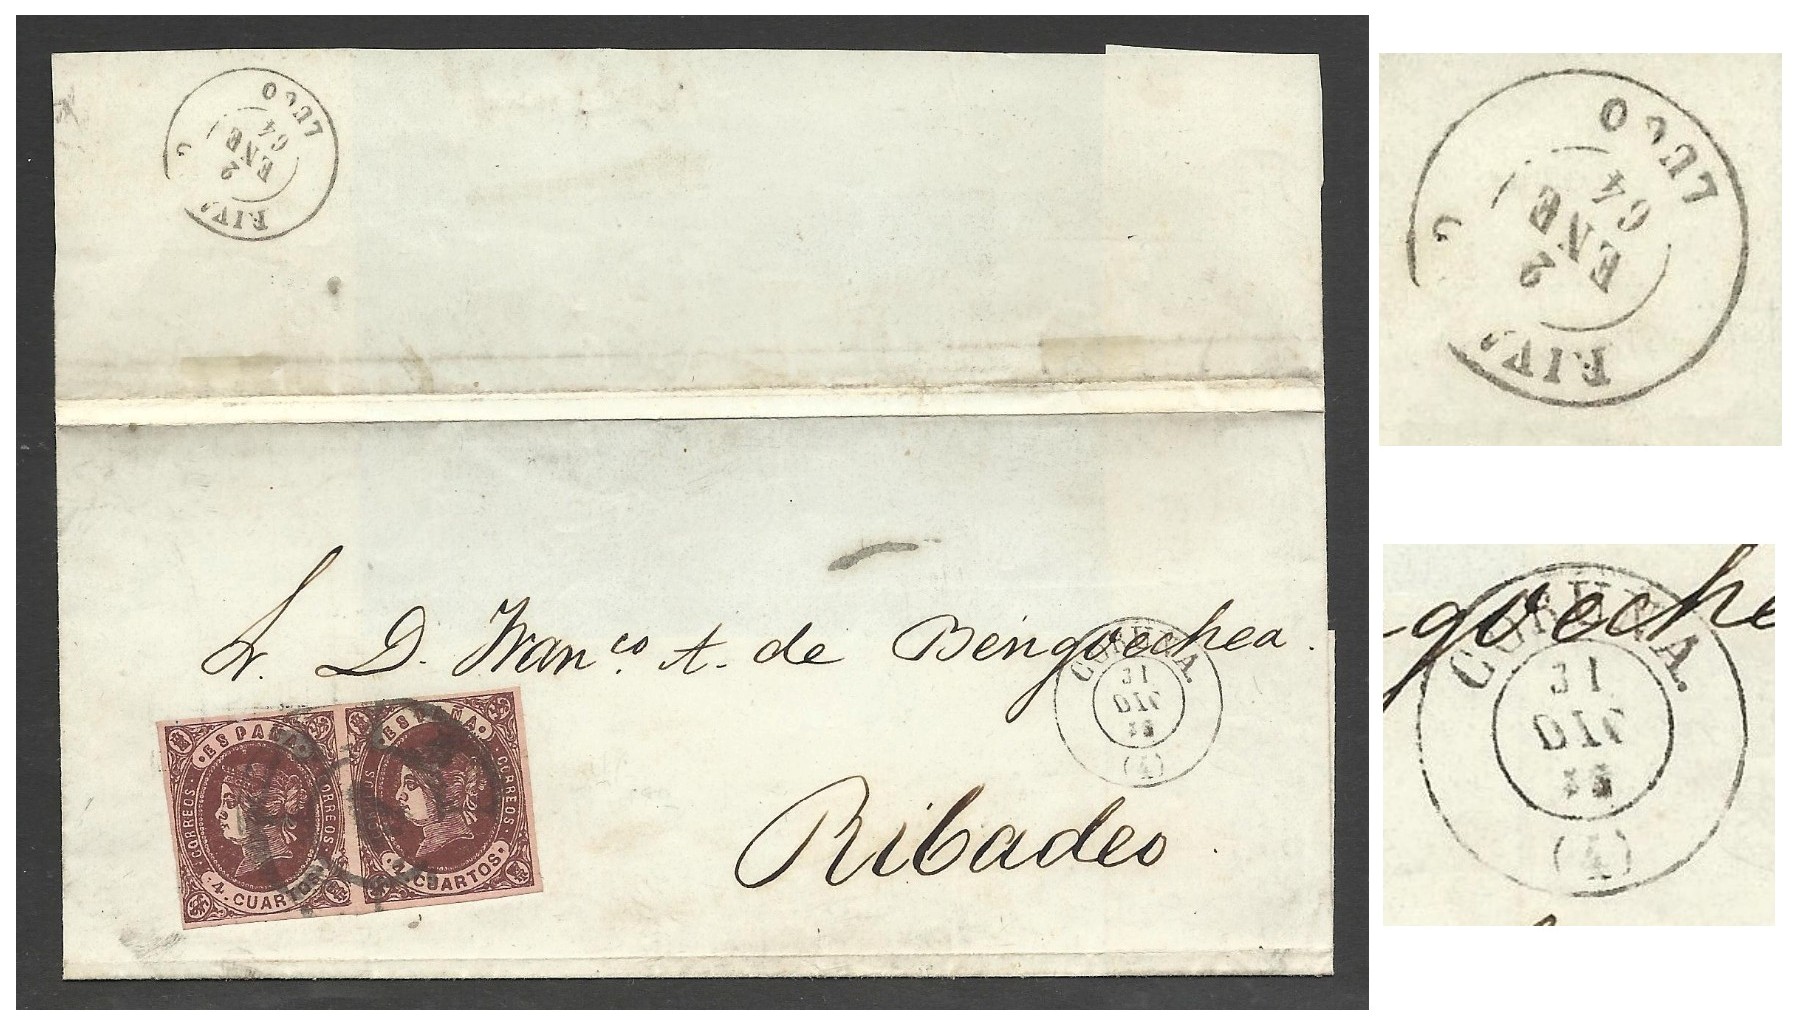 LUGO
2
ENE
64
RIVA
S. D. Franco. A. de Bengoechea.
Ribadeo.
CORUÑA.
31
DIC
(4)
·ESPAÑA·
CORREOS
CORREOS
·4·CUARTOS·
·ESPAÑA·
CORREOS
CORREOS
·4·CUARTOS·
LUGO
2
ENE
64
RIVA
goeche
CORUÑA.
31
DIC
(4)